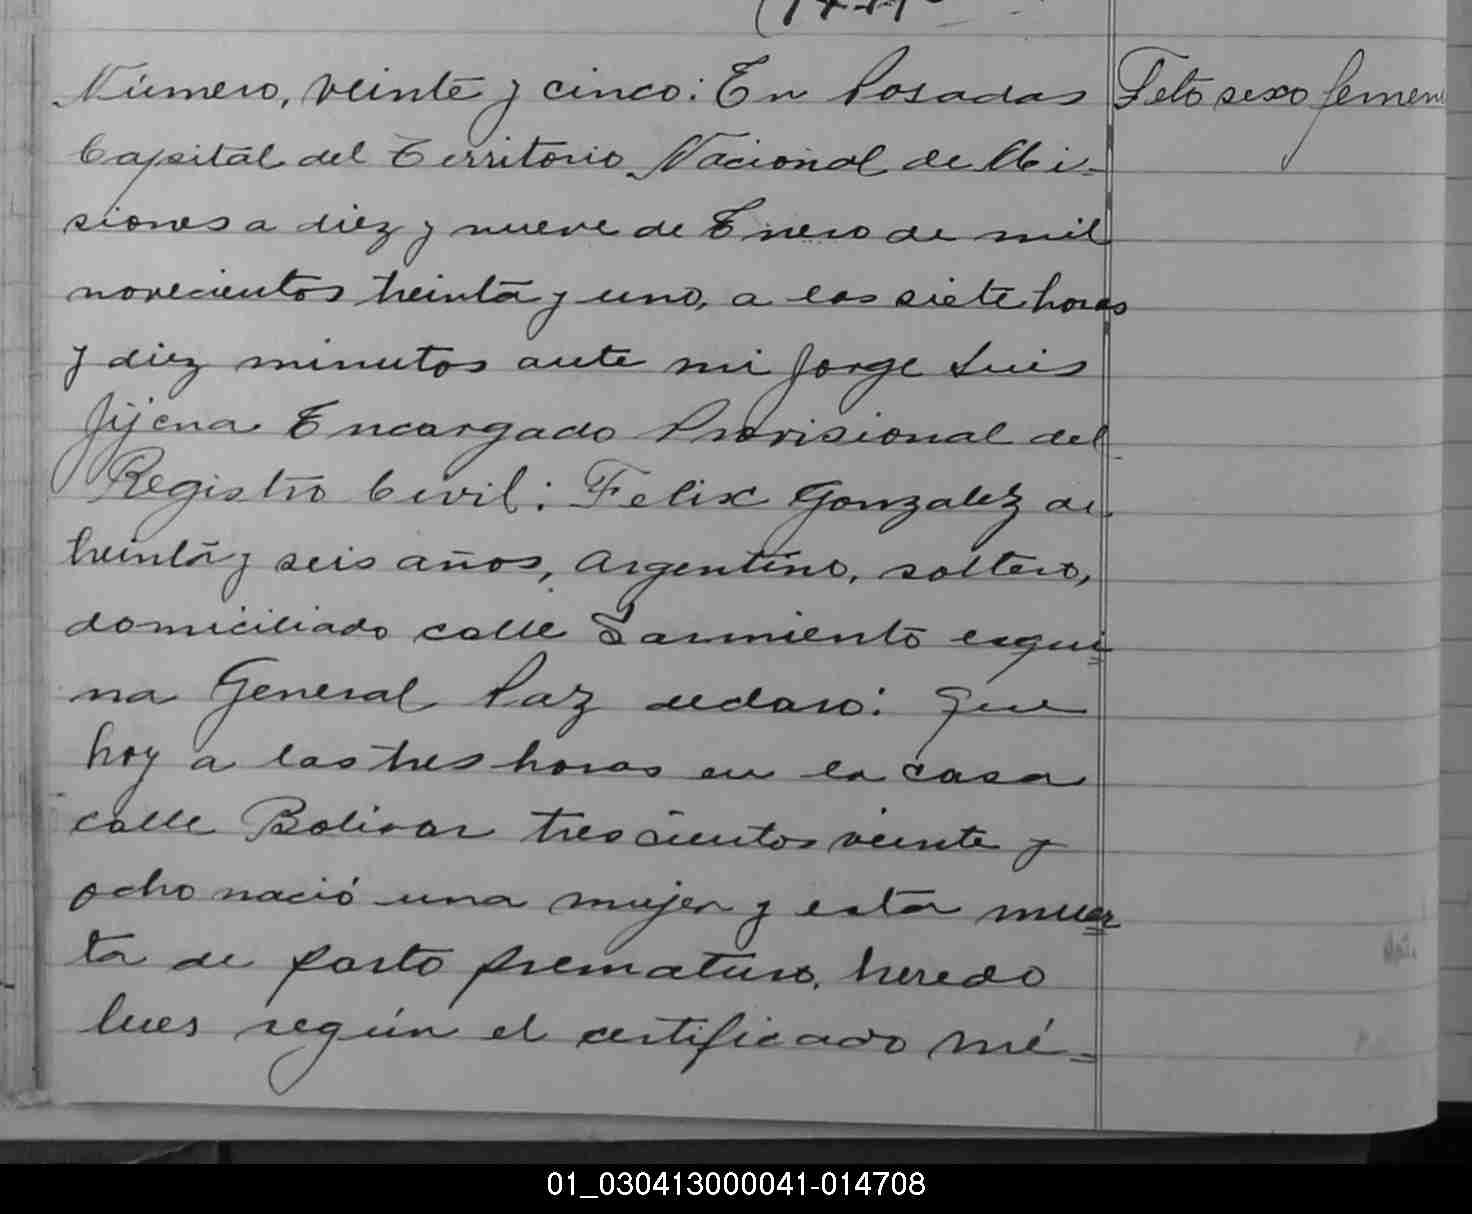 Número, veinte y cinco: En Posadas
Feto sexo femen
Capital del Territorio Nacional de Mi-
siones a diez y nueve de Enero de mil
novecientos treinta y uno, a las siete horas
y diez minutos ante mi Jorge Luis
Jijena Encargado Provisional del
Registro Civil: Felix Gonzalez de
treinta y seis años, argentino, soltero,
domiciliado calle Sarmiento esqui=
na General Paz declaro: Que
hoy a las tres horas en la casa
calle Bolivar trescientos veinte y
ocho nació una mujer y esta muer=
ta de parto prematuro, heredo
lues según el certificado mé=
01_030413000041-014708